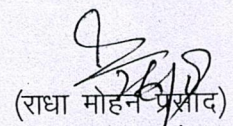 (राधा मोहन प्रसाद)